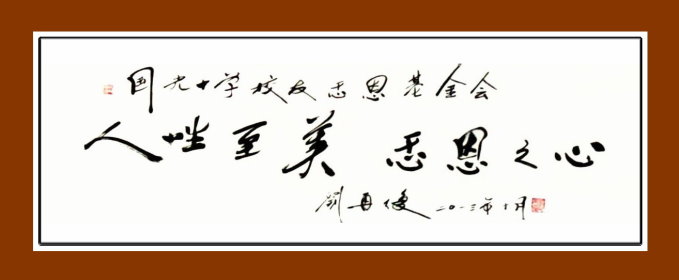 国光中学校友感恩基金会
人性至美 感恩之心
劉再復 二〇一三年 月